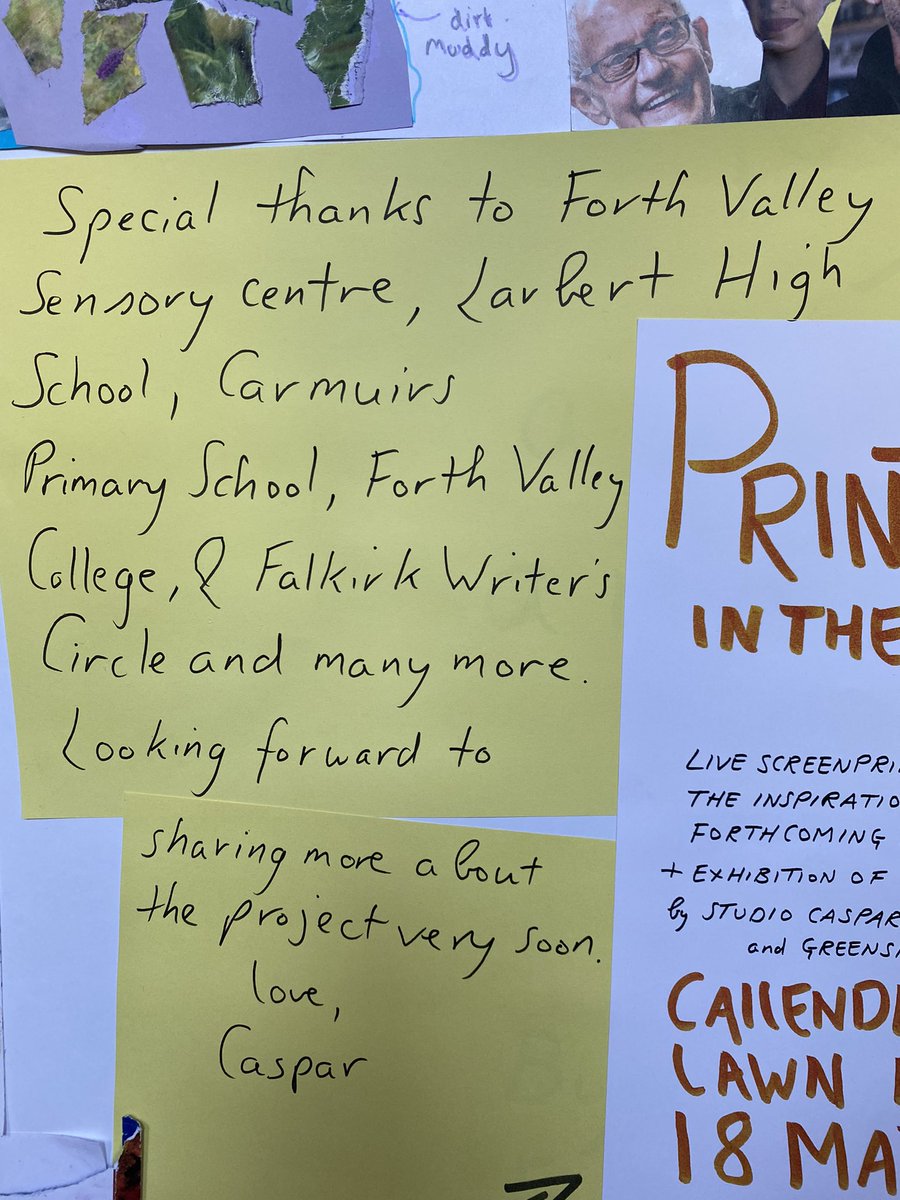 dirt
muddy
Special thanks to Forth Valley
Sensory centre, Larbert High
School, Carmuirs
Primary School, Forth Valley
College, & Falkirk Writer's
Circle and many more.
Looking forward to
sharing more about
the project very soon.
love,
Caspar
PRIN
IN THE
LIVE SCREENPRI
THE INSPIRATIO
FORTHCOMING
+ EXHIBITION OF
by STUDIO CASPAR
and GREENS
CAllEND
LAWN
18 MA